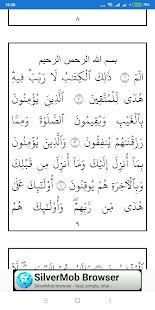 ٨
بسم الله الرحمن الرحيم
الٓمٓ ۝ ذَٰلِكَ ٱلْكِتَٰبُ لَا رَيْبَ ۛ فِيهِ
هُدًى لِّلْمُتَّقِينَ ۝ ٱلَّذِينَ يُؤْمِنُونَ
بِٱلْغَيْبِ وَيُقِيمُونَ ٱلصَّلَوٰةَ وَمِمَّا
رَزَقْنَٰهُمْ يُنفِقُونَ ۝ وَٱلَّذِينَ يُؤْمِنُونَ
بِمَآ أُنزِلَ إِلَيْكَ وَمَآ أُنزِلَ مِن قَبْلِكَ
وَبِٱلْءَاخِرَةِ هُمْ يُوقِنُونَ ۝ أُو۟لَٰٓئِكَ
عَلَىٰ هُدًى مِّن رَّبِّهِمْ ۖ وَأُو۟لَٰٓئِكَ هُمُ
٩
SilverMob Browser